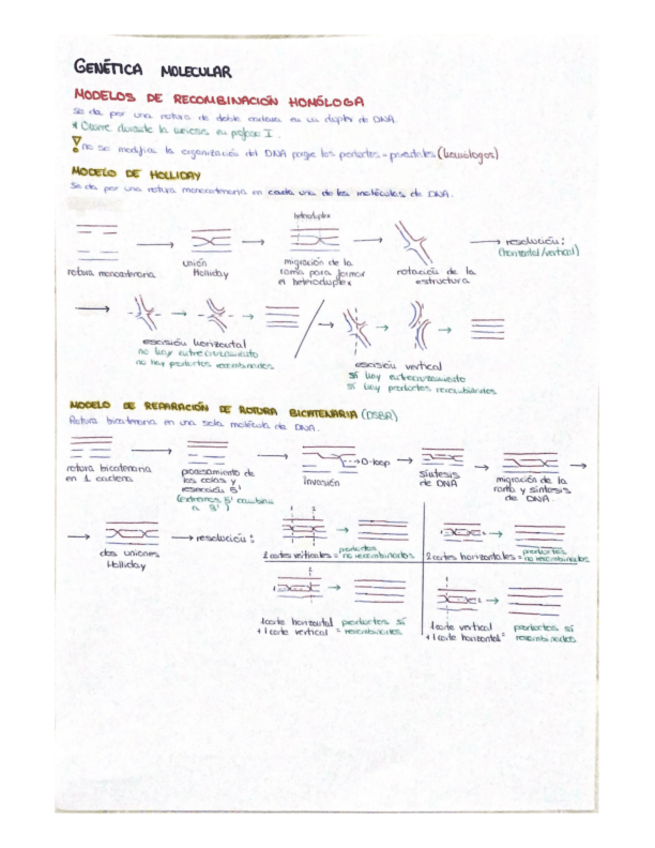 GENÉTICA MOLECULAR
MODELOS DE RECOMBINACIÓN HOMÓLOGA
Se da por una rotura de doble cadena en un duplex de DNA.
* Ocurre durante la meiosis en profase I.
no se modifica la organización del DNA porque los productos = parentales (homólogos)
MODELO DE HOLLIDAY
Se da por una rotura monocatenaria en cada una de las moléculas de DNA.
heteroduplex
rotura monocatenaria
unión
Holliday
migración de la
rama para formar
el heteroduplex
rotación de la
estructura
resolución:
(horizontal/vertical)
escisión horizontal
no hay entrecruzamiento
no hay productos recombinados
escisión vertical
sí hay entrecruzamiento
sí hay productos recombinados
MODELO DE REPARACIÓN DE ROTURA BICATENARIA (DSBR)
Rotura bicatenaria en una sola molécula de DNA.
rotura bicatenaria
en 1 cadena
procesamiento de
las colas y
resección 5'
(extremos 5' cambian
a 3')
D-loop
Invasión
síntesis
de DNA
migración de la
rama y síntesis
de DNA.
dos uniones
Holliday
resolución:
2 cortes verticales = productos no recombinados
2 cortes horizontales = productos no recombinados
1 corte horizontal
+ 1 corte vertical = productos sí recombinados
1 corte vertical
+ 1 corte horizontal = productos sí recombinados